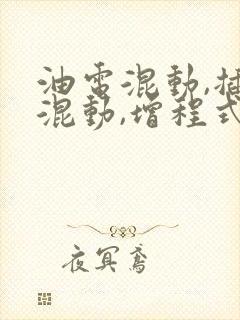 油電混動,插
混動,增程式
夜冥鸢